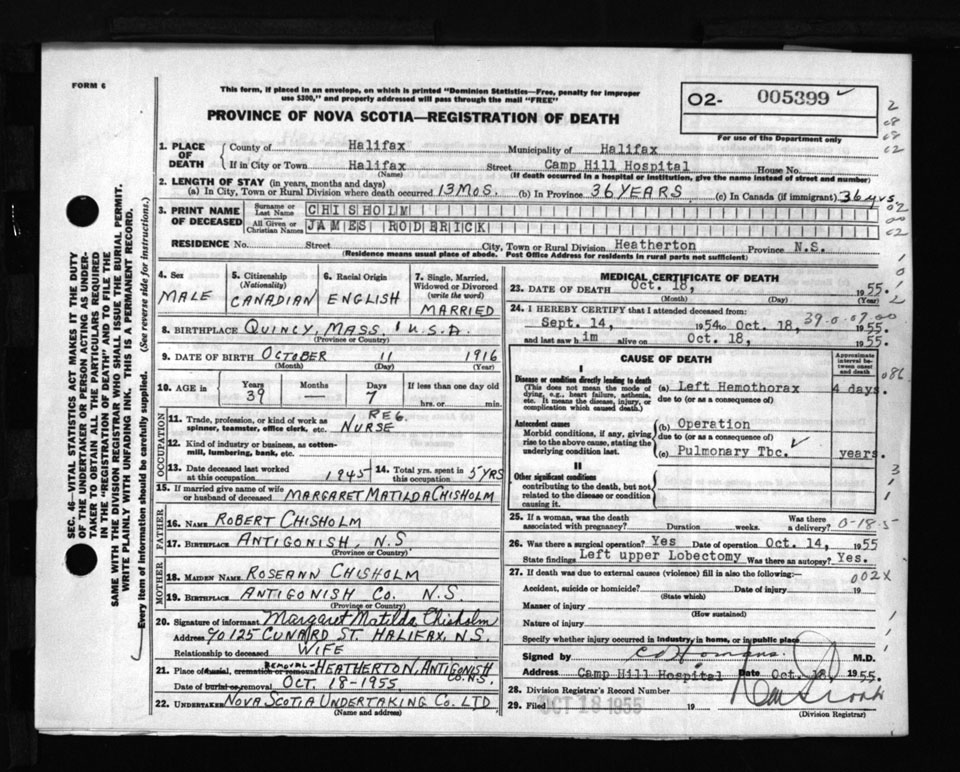 FORM 6
This form, if placed in an envelope, on which is printed "Dominion Statistics—Free, penalty for improper
use $300," and properly addressed will pass through the mail "FREE"
PROVINCE OF NOVA SCOTIA—REGISTRATION OF DEATH
02- 005399
For use of the Department only
2
08
08
02
SEC. 46—VITAL STATISTICS ACT MAKES IT THE DUTY
OF THE UNDERTAKER OR PERSON ACTING AS UNDER-
TAKER TO OBTAIN ALL THE PARTICULARS REQUIRED
IN THE "REGISTRATION OF DEATH" AND TO FILE THE
SAME WITH THE DIVISION REGISTRAR WHO SHALL ISSUE THE BURIAL PERMIT.
WRITE PLAINLY WITH UNFADING INK. THIS IS A PERMANENT RECORD.
Every item of information should be carefully supplied. (See reverse side for instructions.)
1. PLACE OF DEATH
County of Halifax Municipality of Halifax
If in City or Town Halifax Street Camp Hill Hospital House No.
(Name) (If death occurred in a hospital or institution, give the name instead of street and number)
2. LENGTH OF STAY (in years, months and days)
(a) In City, Town or Rural Division where death occurred 13 MOS. (b) In Province 36 YEARS (c) In Canada (if immigrant) 36 yrs
3. PRINT NAME OF DECEASED
Surname or Last Name CHISHOLM
All Given or Christian Names JAMES RODERICK
02
00
02
RESIDENCE No. Street City, Town or Rural Division Heatherton Province N.S.
(Residence means usual place of abode. Post Office Address for residents in rural parts not sufficient)
4. Sex MALE
5. Citizenship (Nationality) CANADIAN
6. Racial Origin ENGLISH
7. Single, Married, Widowed or Divorced (write the word) MARRIED
8. BIRTHPLACE QUINCY, MASS, U.S.A.
(Province or Country)
9. DATE OF BIRTH OCTOBER 11 1916
(Month) (Day) (Year)
10. AGE in Years 39 Months — Days 7 If less than one day old
hrs. or min.
OCCUPATION
11. Trade, profession, or kind of work as spinner, teamster, office clerk, etc. REG. NURSE
12. Kind of industry or business, as cotton-mill, lumbering, bank, etc.
13. Date deceased last worked at this occupation 1945 14. Total yrs. spent in this occupation 5 YRS
15. If married give name of wife or husband of deceased MARGARET MATILDA CHISHOLM
FATHER
16. NAME ROBERT CHISHOLM
17. BIRTHPLACE ANTIGONISH, N.S
(Province or Country)
MOTHER
18. MAIDEN NAME ROSEANN CHISHOLM
19. BIRTHPLACE ANTIGONISH CO. N.S.
(Province or Country)
20. Signature of informant Margaret Matilda Chisholm
Address c/o 125 CUNARD ST. HALIFAX, N.S.
Relationship to deceased WIFE
21. Place of burial, cremation or removal REMOVAL- HEATHERTON, ANTIGONISH CO. N.S.
Date of burial or removal OCT. 18-1955
22. UNDERTAKER NOVA SCOTIA UNDERTAKING CO. LTD
(Name and address)
MEDICAL CERTIFICATE OF DEATH
23. DATE OF DEATH Oct. 18, 1955.
(Month) (Day) (Year)
24. I HEREBY CERTIFY that I attended deceased from:
Sept. 14, 1954 to Oct. 18, 1955. 39-0-07-00
and last saw him alive on Oct. 18, 1955.
CAUSE OF DEATH
Approximate interval between onset and death
I
Disease or condition directly leading to death
(This does not mean the mode of dying, e.g., heart failure, asthenia, etc. It means the disease, injury, or complication which caused death.)
(a) Left Hemothorax 4 days.
due to (or as a consequence)
086
Antecedent causes
Morbid conditions, if any, giving rise to the above cause, stating the underlying condition last.
(b) Operation
due to (or as a consequence)
(c) Pulmonary Tbc. years.
II
Other significant conditions
contributing to the death, but not related to the disease or condition causing it.
25. If a woman, was the death associated with pregnancy? Duration weeks. Was there a delivery? 0-18-5
26. Was there a surgical operation? Yes Date of operation Oct. 14, 1955
State findings Left upper Lobectomy Was there an autopsy? Yes.
27. If death was due to external causes (violence) fill in also the following:—
002X
Accident, suicide or homicide? Date of injury 19
(State which)
Manner of injury
(How sustained)
Nature of injury
Specify whether injury occurred in industry, in home, or in public place
Signed by M.D.
Address Camp Hill Hospital Date Oct. 18, 1955
28. Division Registrar's Record Number
29. Filed OCT 18 1955 19
(Division Registrar)